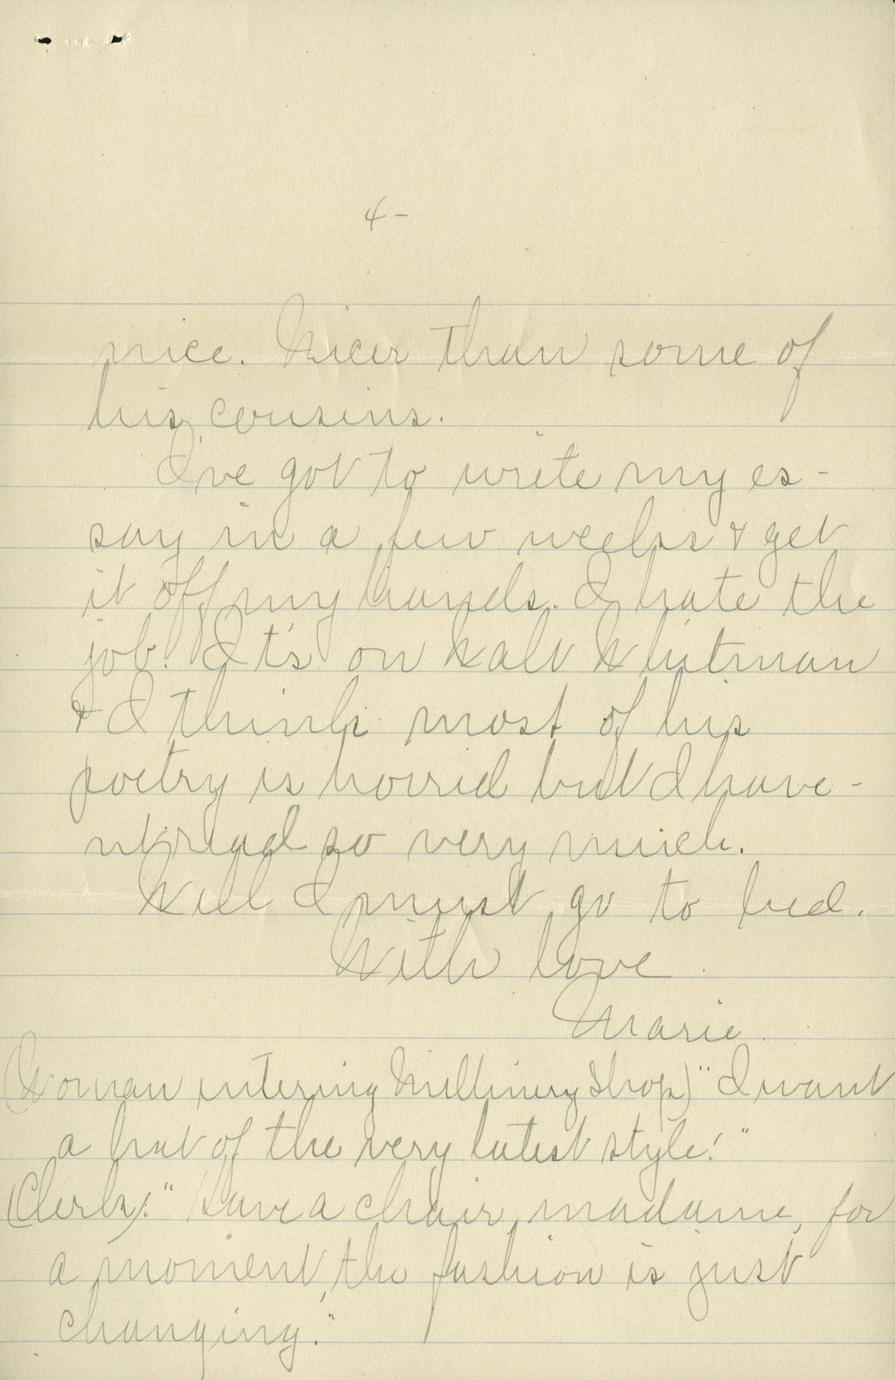 4-
nice. Nicer than some of
his cousins.
I've got to write my es-
say in a few weeks & get
it off my hands. I hate the
job. It's on Walt Whitman
& I think most of his
poetry is horrid but I have-
n't read so very much.
Well I must go to bed.
With love
Marie
(Woman entering Millinery Shop) "I want
a hat of the very latest style."
(Clerk): "Have a chair, madame, for
a moment, the fashion is just
changing."